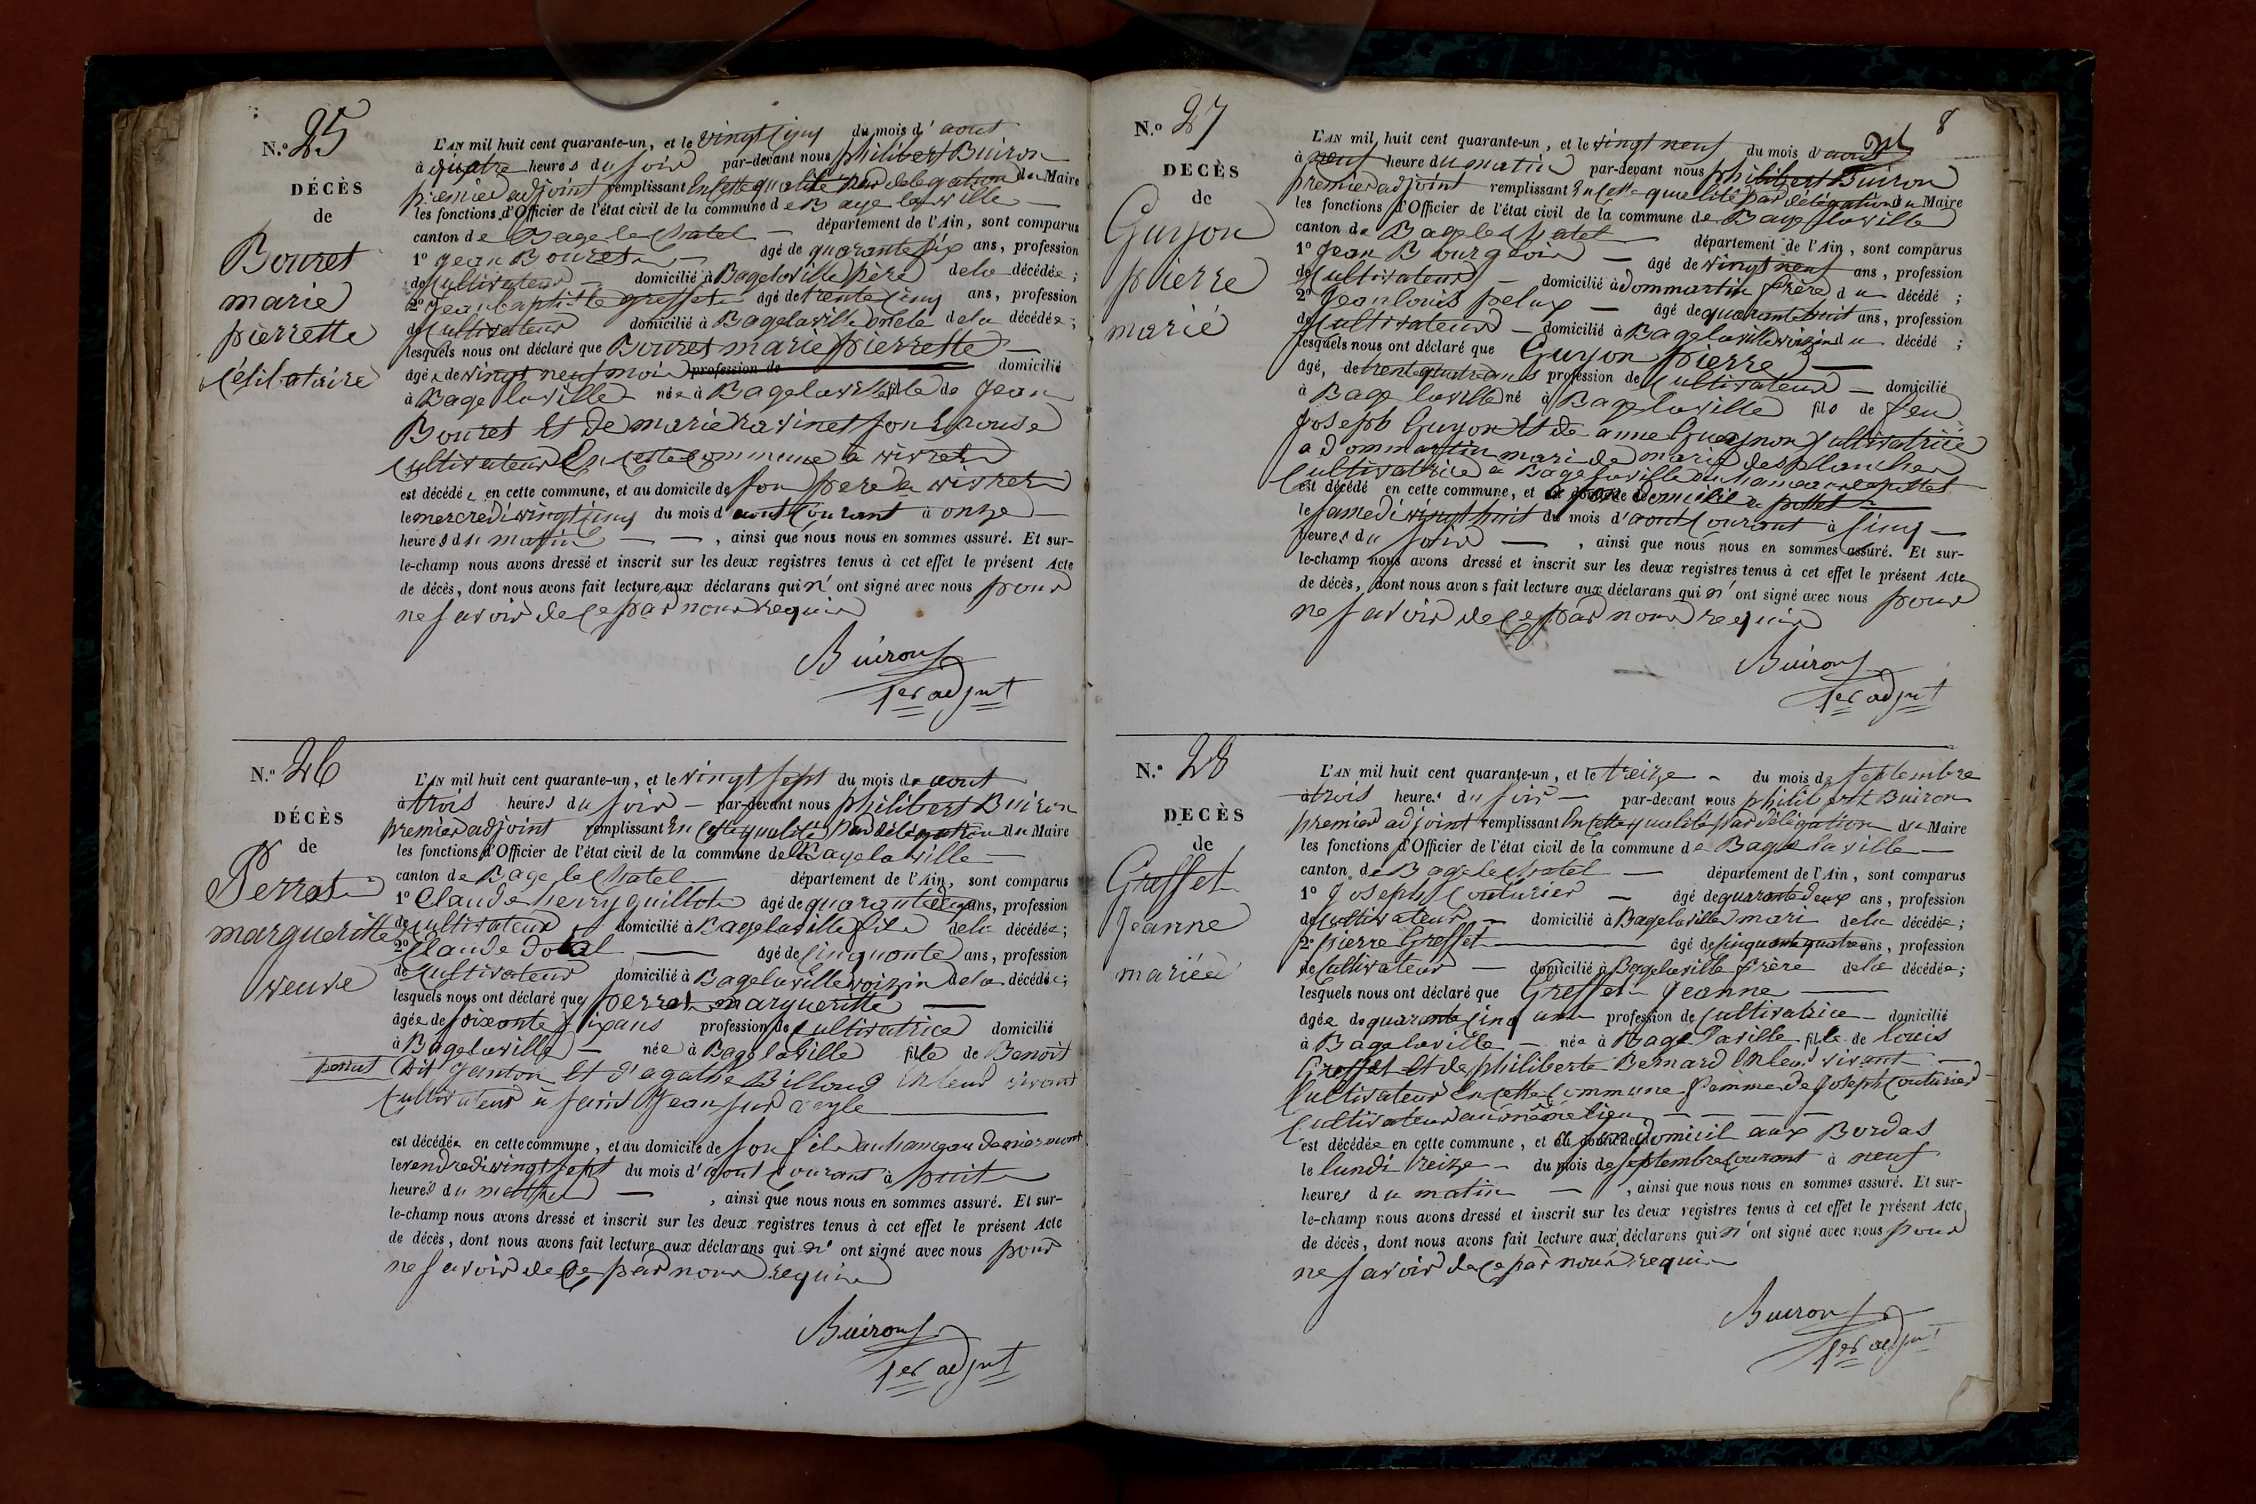 N.º 25
DÉCÈS
de
Bouret
marie
pierrette
célibataire
L'AN mil huit cent quarante-un, et le vingt cinq du mois d'aout
à quatre heures du soir par-devant nous philibert Buiron
premier adjoint remplissant en cette qualité par delegation du Maire
les fonctions d'Officier de l'état civil de la commune de Bage la ville
canton de Bage le Chatel département de l'Ain, sont comparus
1º jean Bouret âgé de quarante six ans, profession
de cultivateur domicilié à Bage la ville père de la décédée ;
2º jean baptiste greffet âgé de trente cinq ans, profession
de cultivateur domicilié à Bage la ville oncle de la décédée ;
lesquels nous ont déclaré que Bouret marie pierrette
âgée de vingt neuf moi profession de domicilié
à Bage la ville née à Bage la ville fille de jean
Bouret et de marie ravinet son épouse
cultivateur en cette commune à
est décédée en cette commune, et au domicile de son père à
le mercredi vingt cinq du mois d'aout courant à onze
heures du matin, ainsi que nous nous en sommes assuré. Et sur-
le-champ nous avons dressé et inscrit sur les deux registres tenus à cet effet le présent Acte
de décès, dont nous avons fait lecture aux déclarans qui n'ont signé avec nous pour
ne savoir de ce par nous requis
Buiron
1er adjnt
N.º 26
DÉCÈS
de
Perrat
margueritte
veuve
L'AN mil huit cent quarante-un, et le vingt sept du mois de aout
à trois heures du soir par-devant nous philibert Buiron
premier adjoint remplissant en cette qualité par délégation du Maire
les fonctions d'Officier de l'état civil de la commune de Bage la ville
canton de Bage le Chatel département de l'Ain, sont comparus
1º Claude henry guillot âgé de quarante deux ans, profession
de cultivateur domicilié à Bage la ville fils de la décédée ;
2º Claude Dotal âgé de cinquante ans, profession
de cultivateur domicilié à Bage la ville voizin de la décédée ;
lesquels nous ont déclaré que perrat margueritte
âgée de soixante six ans profession de cultivatrice domicilié
à Bage la ville née à Bage la ville fille de Benoit
perrat dit janton et d'agathe Billoud en leur vivant
cultivateur à saint jean sur veyle
est décédée en cette commune, et au domicile de son fils au hameau de
le vendredi vingt sept du mois d'aout courant à huit
heures du matin, ainsi que nous nous en sommes assuré. Et sur-
le-champ nous avons dressé et inscrit sur les deux registres tenus à cet effet le présent Acte
de décès, dont nous avons fait lecture aux déclarans qui n'ont signé avec nous pour
ne savoir de ce par nous requis
Buiron
1er adjnt
8
N.º 27
DÉCÈS
de
Guyon
pierre
marié
L'AN mil huit cent quarante-un, et le vingt neuf du mois d'aout
à neuf heure du matin par-devant nous philibert Buiron
premier adjoint remplissant en cette qualité par délégation du Maire
les fonctions d'Officier de l'état civil de la commune de Bage la ville
canton de Bage le Chatel département de l'Ain, sont comparus
1º jean Bourgeois âgé de vingt neuf ans, profession
de cultivateur domicilié à dommartin frère du décédé ;
2º jean louis pelux âgé de quarante huit ans, profession
de cultivateur domicilié à Bage la ville voizin du décédé ;
lesquels nous ont déclaré que Guyon pierre
âgé, de trente quatre ans profession de cultivateur domicilié
à Bage la ville né à Bage la ville fils de feu
joseph Guyon et de anne Guagnon cultivatrice
a dommartin mari de marie desplanches
cultivatrice a Bage la ville au hameau de
est décédé en cette commune, et à son domicile a
le samedi vingt huit du mois d'aout courant à cinq
heures du soir, ainsi que nous nous en sommes assuré. Et sur-
le-champ nous avons dressé et inscrit sur les deux registres tenus à cet effet le présent Acte
de décès, dont nous avons fait lecture aux déclarans qui n'ont signé avec nous pour
ne savoir de ce par nous requis
Buiron
1er adjnt
N.º 28
DÉCÈS
de
Greffet
Jeanne
mariée
L'AN mil huit cent quarante-un, et le treize du mois de septembre
à trois heures du soir par-devant nous philibert Buiron
premier adjoint remplissant en cette qualité par délégation du Maire
les fonctions d'Officier de l'état civil de la commune de Bage la ville
canton de Bage le Chatel département de l'Ain, sont comparus
1º Joseph Couturier âgé de quarante deux ans, profession
de cultivateur domicilié à Bage la ville mari de la décédée ;
2º pierre Greffet âgé de cinquante quatre ans, profession
de cultivateur domicilié à Bage la ville frère de la décédée ;
lesquels nous ont déclaré que Greffet Jeanne
âgée de quarante cinq ans profession de cultivatrice domicilié
à Bage la ville née à Bage la ville fille de louis
Greffet et de philiberte Bernard en leur vivant
cultivateur en cette commune femme de joseph Couturier
cultivateur au même lieu
est décédée en cette commune, et à son domicil aux Bordas
le lundi treize du mois de septembre courant à neuf
heures du matin, ainsi que nous nous en sommes assuré. Et sur-
le-champ nous avons dressé et inscrit sur les deux registres tenus à cet effet le présent Acte
de décès, dont nous avons fait lecture aux déclarans qui n'ont signé avec nous pour
ne savoir de ce par nous requis
Buiron
1er adjnt